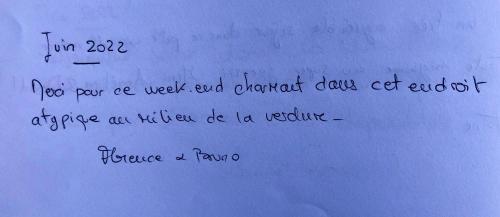 Juin 2022
Merci pour ce week-end charmant dans cet endroit
atypique au milieu de la verdure -
Florence & Bruno